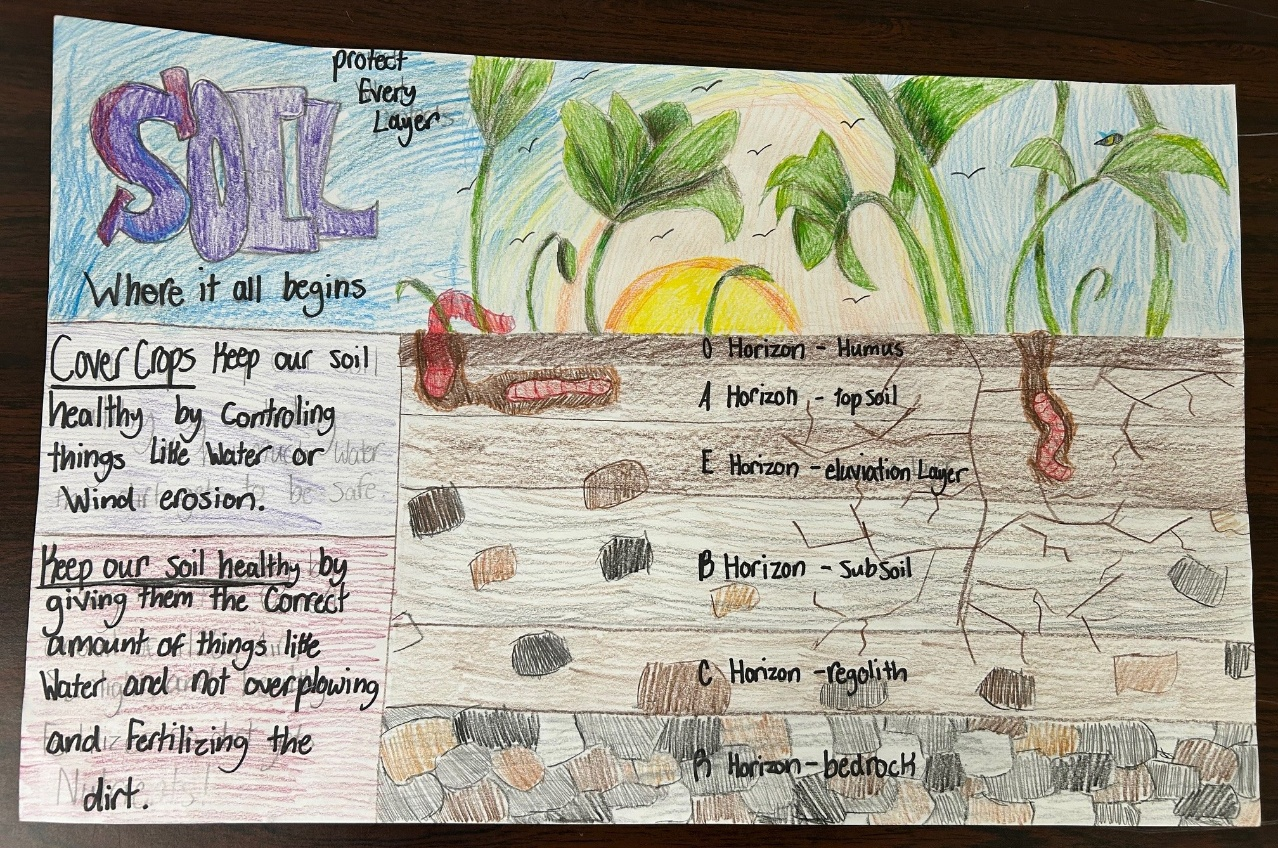 SOIL
protect
Every
Layer
Where it all begins
Cover Crops Keep our soil
healthy by Controling
things like Water or
Wind erosion.
Keep our soil healthy by
giving them the Correct
amount of things like
Water and not overplowing
and Fertilizing the
dirt.
O Horizon - Humus
A Horizon - top soil
E Horizon - eluviation Layer
B Horizon - SubSoil
C Horizon - regolith
R Horizon - bedrock